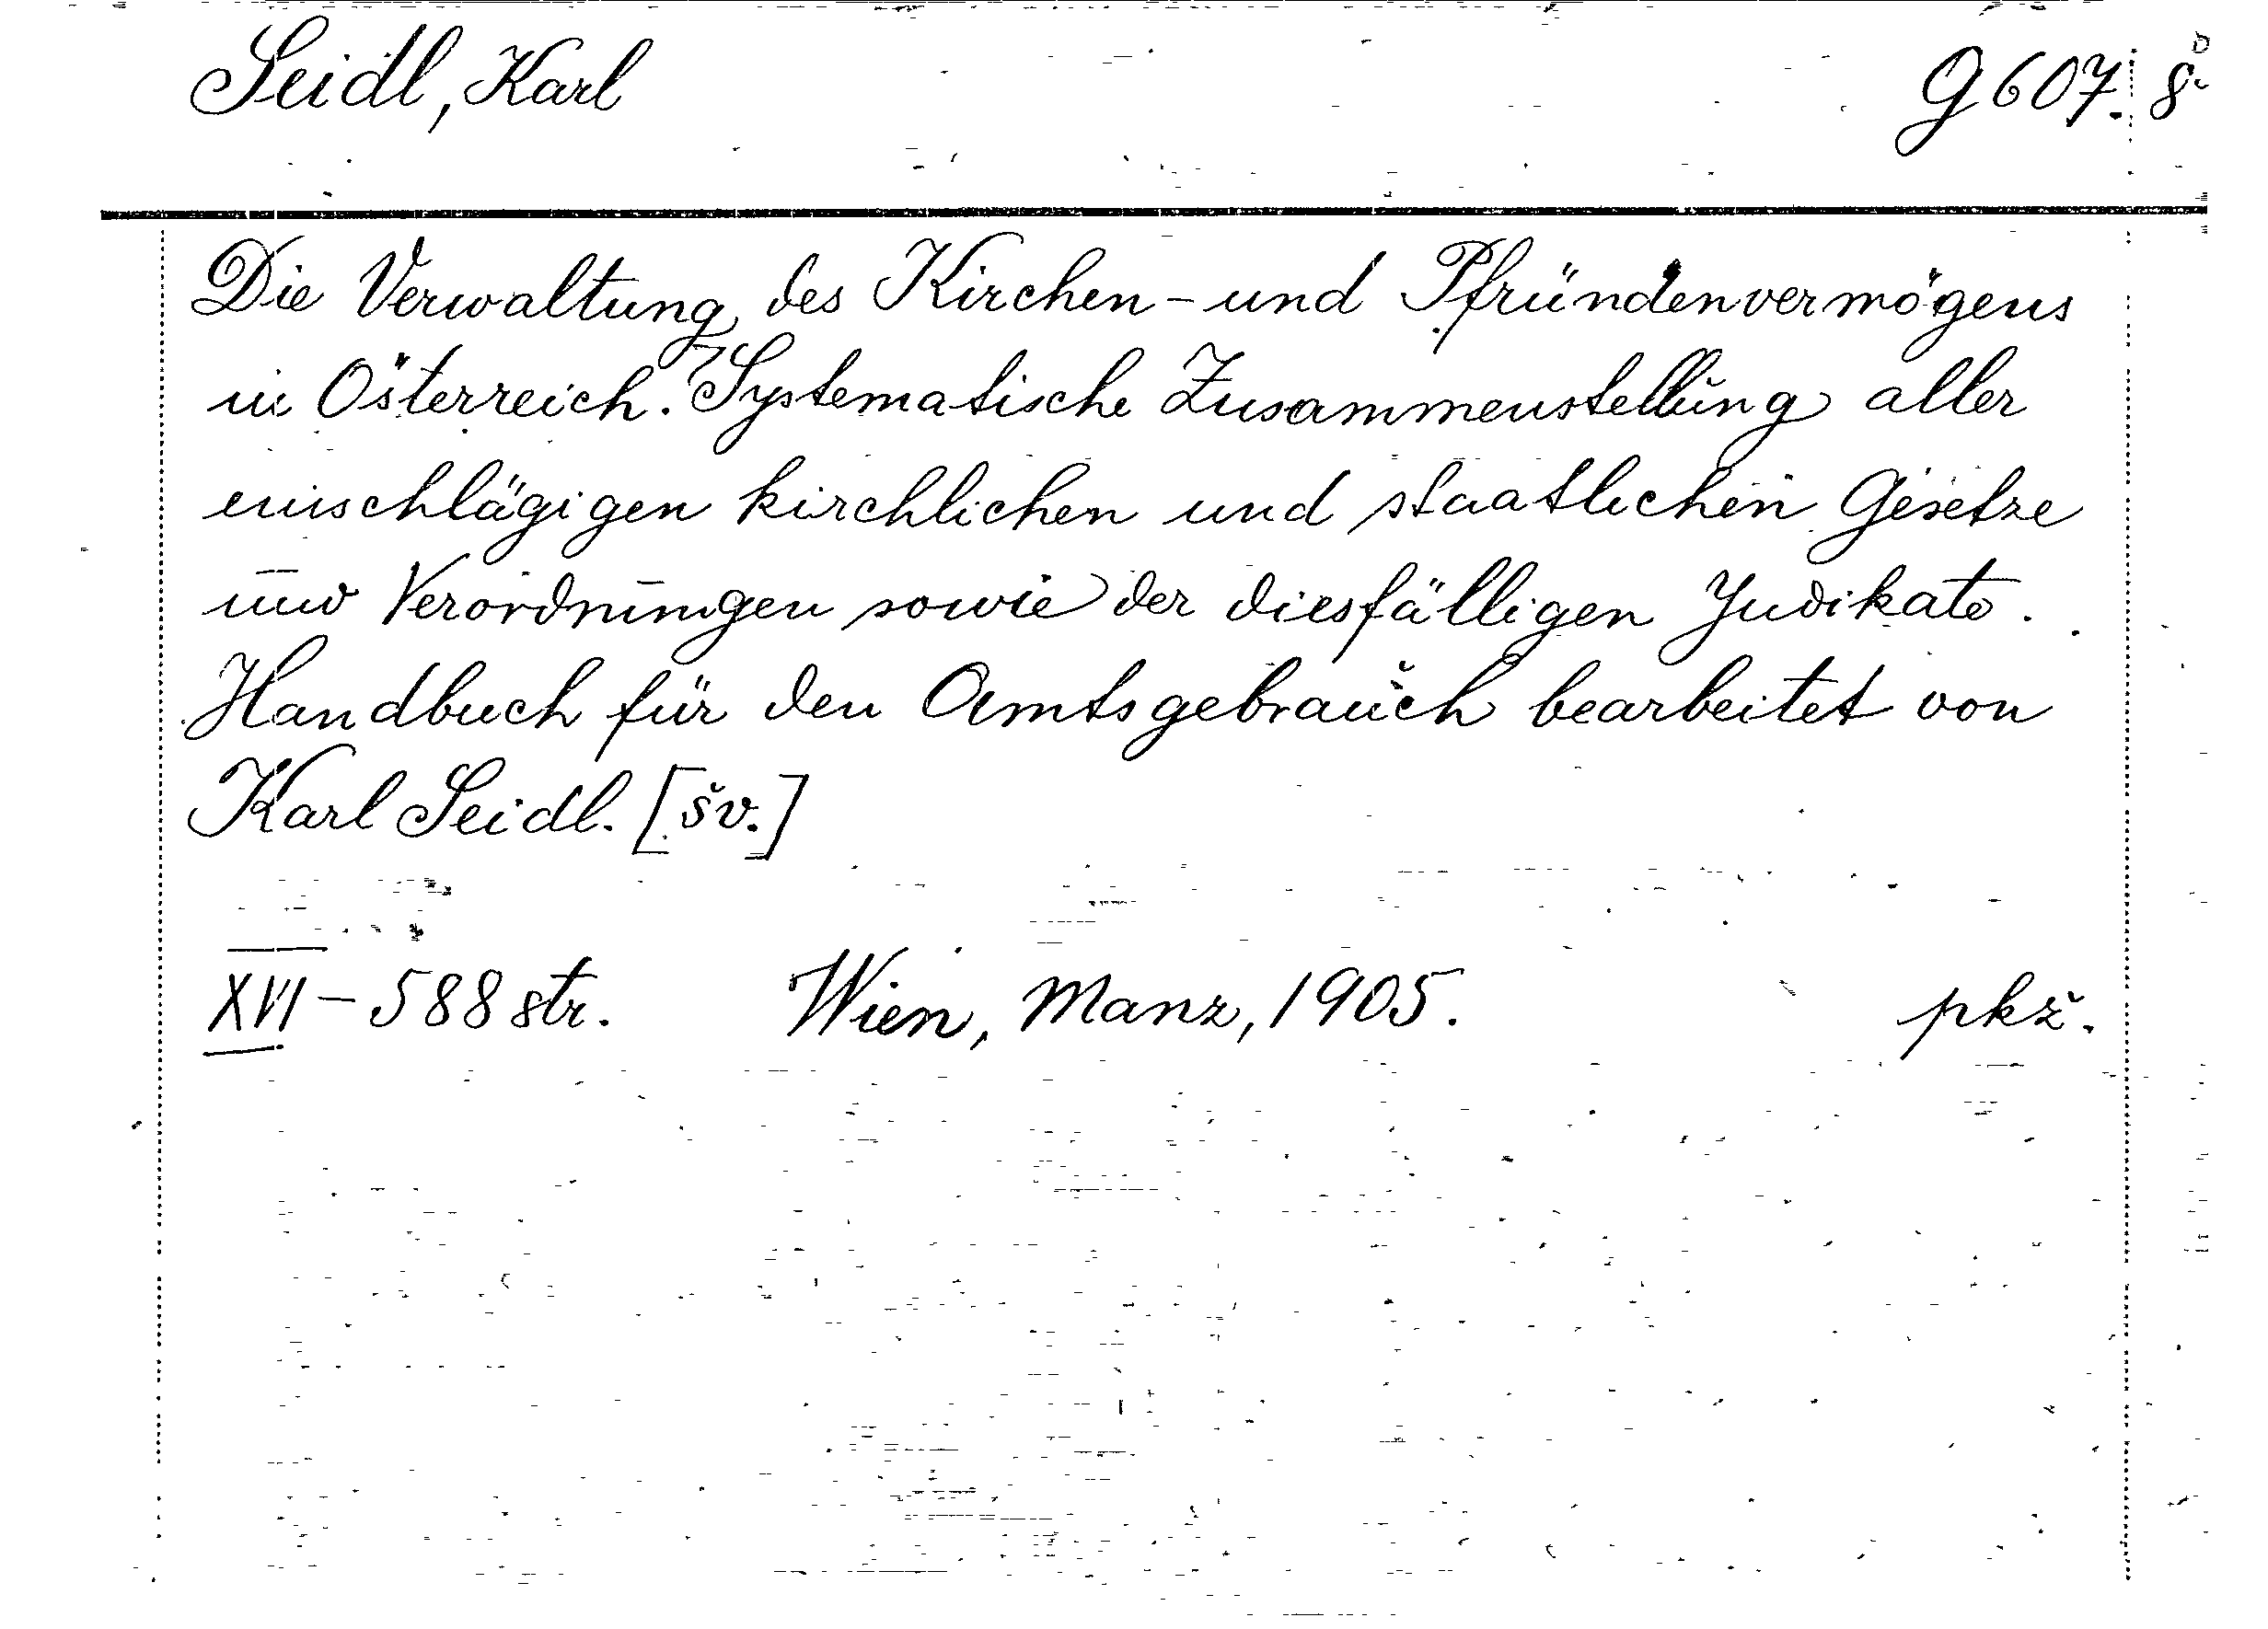 Seidl, Karl G 607. 8°
Die Verwaltung des Kirchen- und Pfründenvermögens
in Österreich. Systematische Zusammenstellung aller
einschlägigen kirchlichen und staatlichen Gesetze
und Verordnungen sowie der diesfälligen Judikate.
Handbuch für den Amtsgebrauch bearbeitet von
Karl Seidl. [šv.]
XVI - 588 str. Wien, Manz, 1905. pkž.